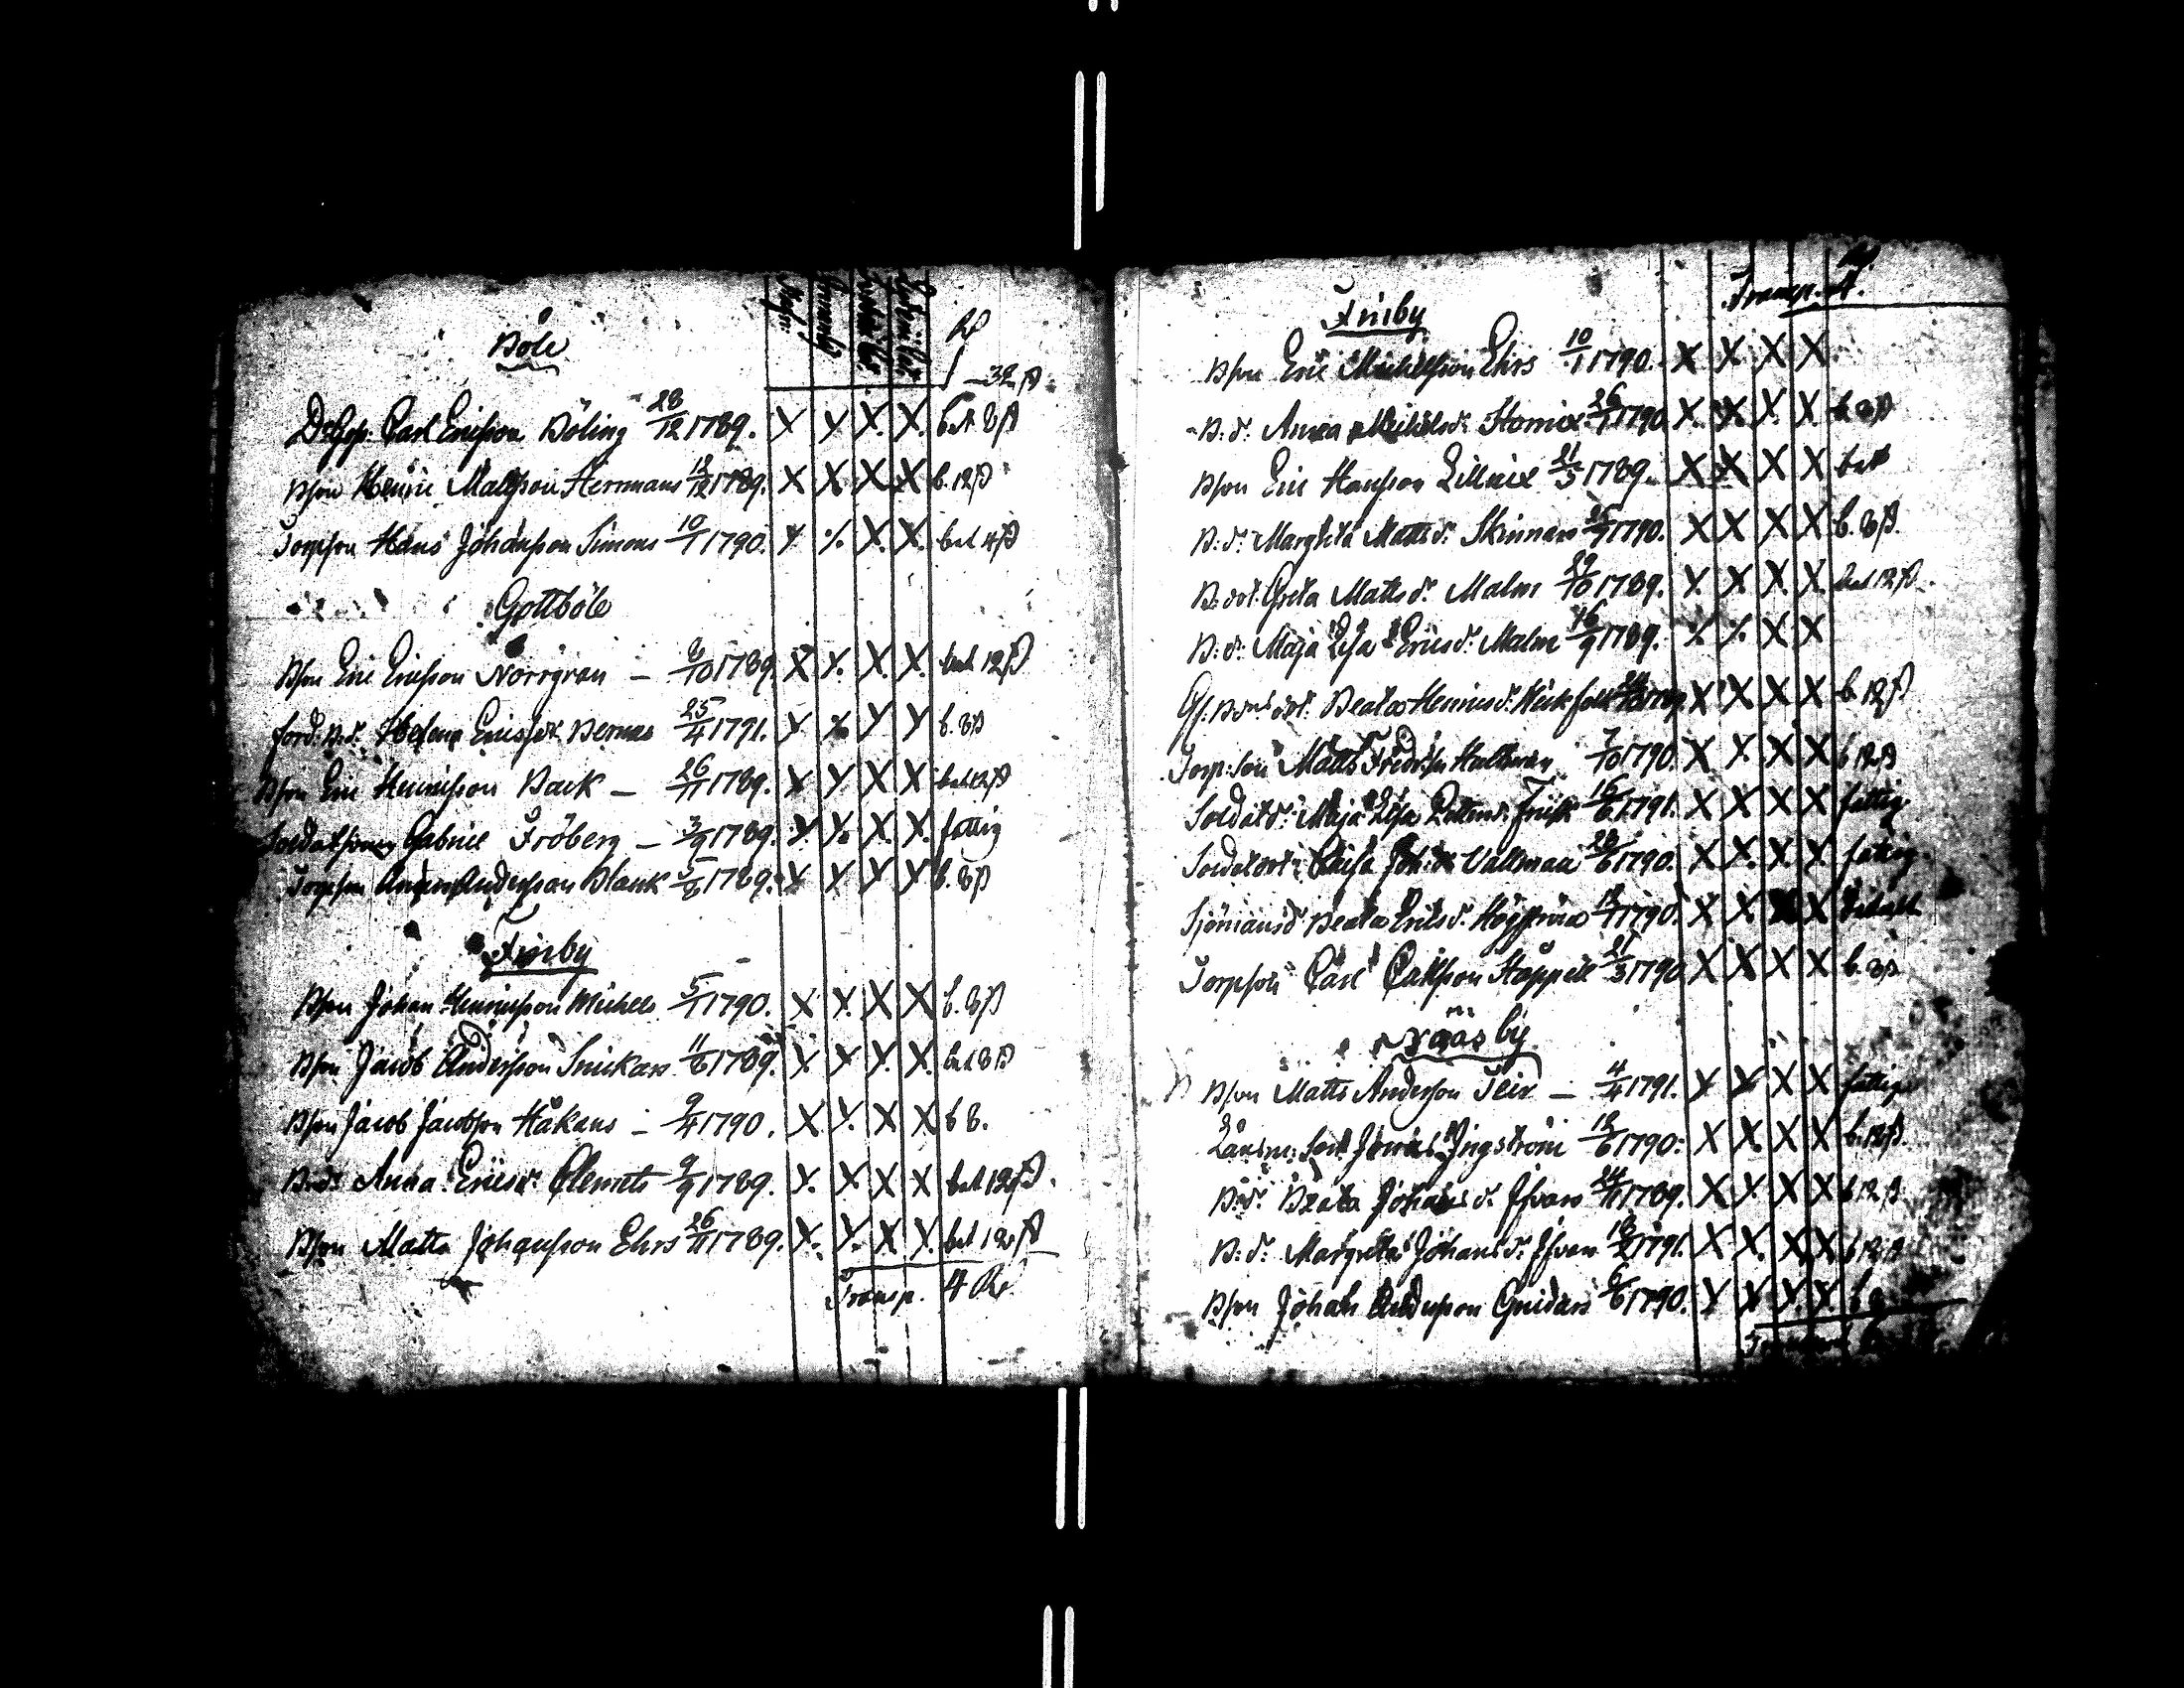 Böle
32 ß
Carl Ericsson Böling 28/12 1789. X X X. X. bet 8 ß
Bson Henric Mattsson Hermans 12/12 1789. X X X X b. 12 ß
Torpson Hans Johansson Simons 10/1 1790. X X. X. X. bet 4 ß
Gottböle
Bson Eric Ericsson Norrgran — 8/10 1789. X X. X. X. bet 12 ß
ford: B:d: Helena Ericsdr 25/4 1791. X X X X b. 8 ß
Bson Eric Henricsson Back — 26/11 1789. X X X X bet 12 ß
Soldatsonen Gabriel Fröberg — 3/9 1789. X. X X. X. fattig
Torpson Andersson Blank 5/8 1789. X X X X b. 8 ß
Finby
Bson Johan Henricsson Michels 5/1 1790. X X. X X b. 8 ß
Bson Jacob Andersson Snickars 11/6 1789. X. X X. X. bet 8 ß
Bson Jacob Jacobsson Håkans — 9/4 1790. X X. X X b 8.
B:dr Anna Ericsdr Clemets 9/9 1789. X. X. X X bet 12 ß.
Bson Matts Johansson Ehrs 26/11 1789. X. X. X X. bet 12 ß
Transp. 4 R
Transp. 4.
Finby
Bson Eric Michelsson Ehrs 10/1 1790. X X. X X.
B:d: Anna Michelsdr 26/1 1790 X. X. X. X. b. 8 ß
Bson Eric Hansson 21/5 1789. X X X X bet
B:d: Margreta Mattsd: Skinnars 1790. X X X X b. 8 ß.
B:dot: Greta Mattsd: Malm 29/10 1789. X. X X. X. bet 12 ß.
B:d: Maja Lisa Ericsd: Malm 16/9 1789. X. X. X X
Beata Henricsd: X X X X b. 12 ß
Torp:son Matts 7/10 1790. X X. X X b 12 ß
Soldatd: Maja Lisa Frisk 16/6 1791. X X X X fattig
Soldatdotr: Caisa Vallman 28/6 1790. X X. X X fattig
Sjömansd: Beata Ericsd: 1790. X X X X betalt
Torpson Carl Carlsson 21/3 1790 X X X X b. 8 ß
Näsby
Bson Matts Andersson Teir — 4/4 1791. X X X X fattig
Länsm: Jonas Ingström 12/6 1790. X X. X X b. 12 ß.
B:d: Beata Johansd: Ifvars 24/11 1789. X X. X X b 12 ß
B:d: Margreta Johansd: Ifvars 18/2 1791. X X. X X b 12 ß
Bson Johan Andersson Gnidars 6/6 1790. X X X. X. b 8